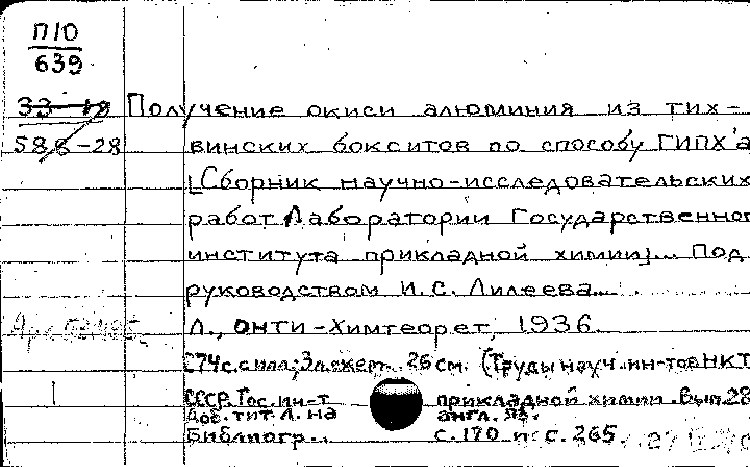 П10
639
33-18
588-28
Получение окиси алюминия из тих-
винских бокситов по способу ГИПХ'а
[Сборник научно-исследовательских
работ Лаборатории Государственног
института прикладной химии]... Под
руководством И.С. Лилеева...
Л., ОНТИ-Химтеорет, 1936
274 с. с илл.; 3 л. схем. 26 см. (Труды науч. ин-тов НКТ
СССР. Гос. ин-т прикладной химии. Вып. 28
Доб. тит. л. на англ. яз.
Библиогр.: с. 170 и с. 265